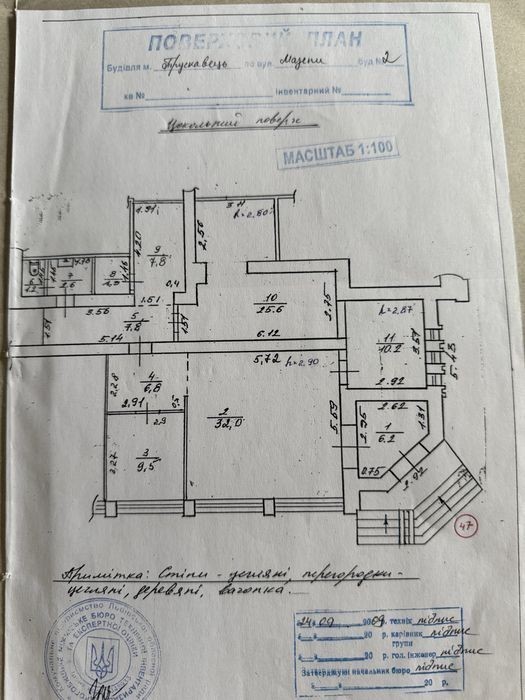 ПОВЕРХОВИЙ ПЛАН
Будівля м. Трускавець по вул Мазепи буд № 2
кв № інвентарний №
Цокольний поверх
МАСШТАБ 1:100
1.91
3.11
h=2.80
4.20
2,56
9
7.8
7
2.6
8
1.9
1.16
0,4
3.56
1.51
5
7.8
1.54
1.51
5.14
10
25.6
2.75
6.12
h=2.87
11
10.2
3.51
2.92
5.43
5,72
h=2.90
4
6,8
2,28
2,91
0.5
2.9
2
32,0
5.69
3
9,5
2,27
2.62
1
6.2
2.95
1.31
0.75
2.92
47
Примітка: Стіни - цегляні, перегородки-
цегляні, деревяні, вагонка.
24.09 2009 р. технік підпис
20 р. керівник групи підпис
20 р. гол. інженер підпис
Затверджую начальник бюро підпис
20 р.